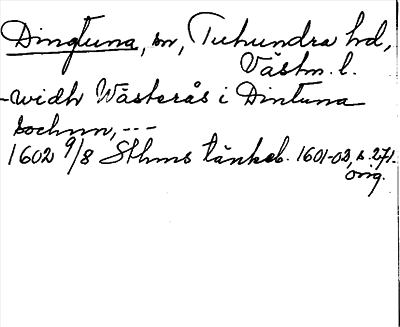 Dingtuna, sn, Tuhundra hd,
Västm. l.
-widh Wästerås i Dintuna
sochnn, ---
1602 9/8 Sthms tänkeb. 1601-02, s. 271.
orig.